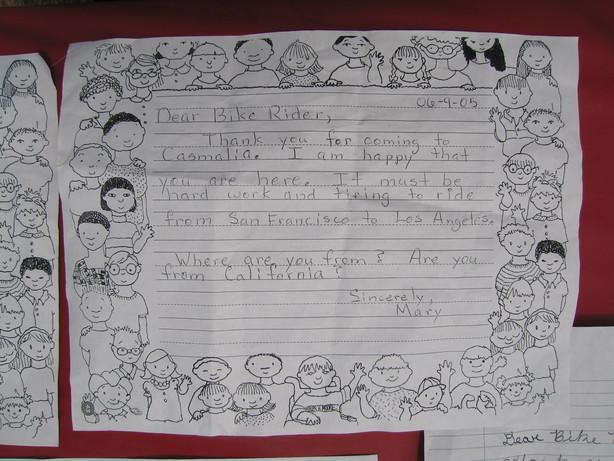 06-9-05
Dear Bike Rider,
Thank you for coming to
Casmalia. I am happy that
you are here. It must be
hard work and tiring to ride
from San Francisco to Los Angeles.
Where are you from? Are you
from California?
Sincerely,
Mary
Dear Bike